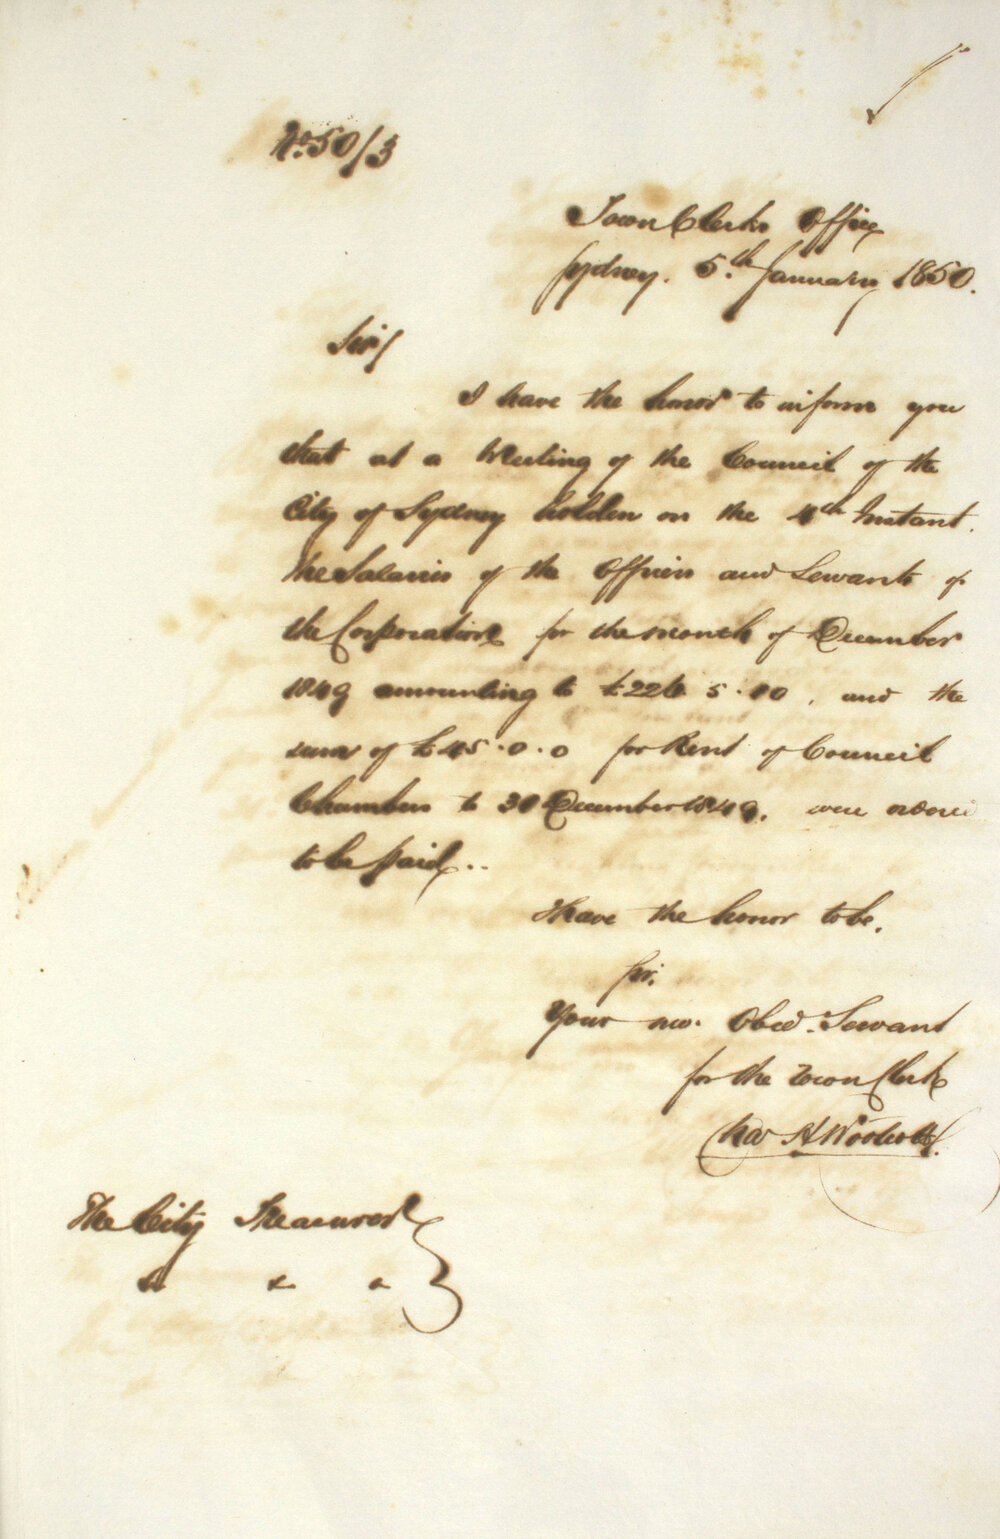 No. 50/3
Town Clerks Office
Sydney. 5th January 1850.
Sir/
I have the honor to inform you
that at a Meeting of the Council of the
City of Sydney holden on the 4th Instant.
the Salaries of the Officers and Servants of
the Corporation for the month of December
1849 amounting to £226 5. 10, and the
sum of £45.0.0 for Rent of Council
Chambers to 30 December 1849. were
to be paid..
I have the honor to be.
Sir.
Your mo. Obed. Servant
for the Town Clerk
Chas H Woolcott.
The City Treasurer
&c &c &c